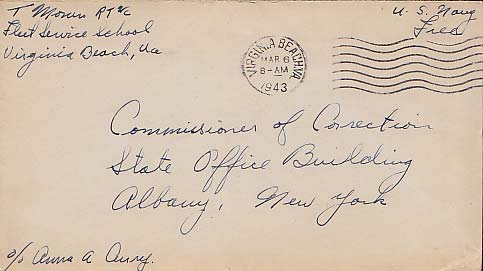 T Moran RT 2/c
Fleet Service School
Virginia Beach, Va
U. S. Navy
Free
VIRGINIA BEACH, VA.
MAR 6
8-AM
1943
Commissioner of Correction
State Office Building
Albany, New York
c/o Anna A